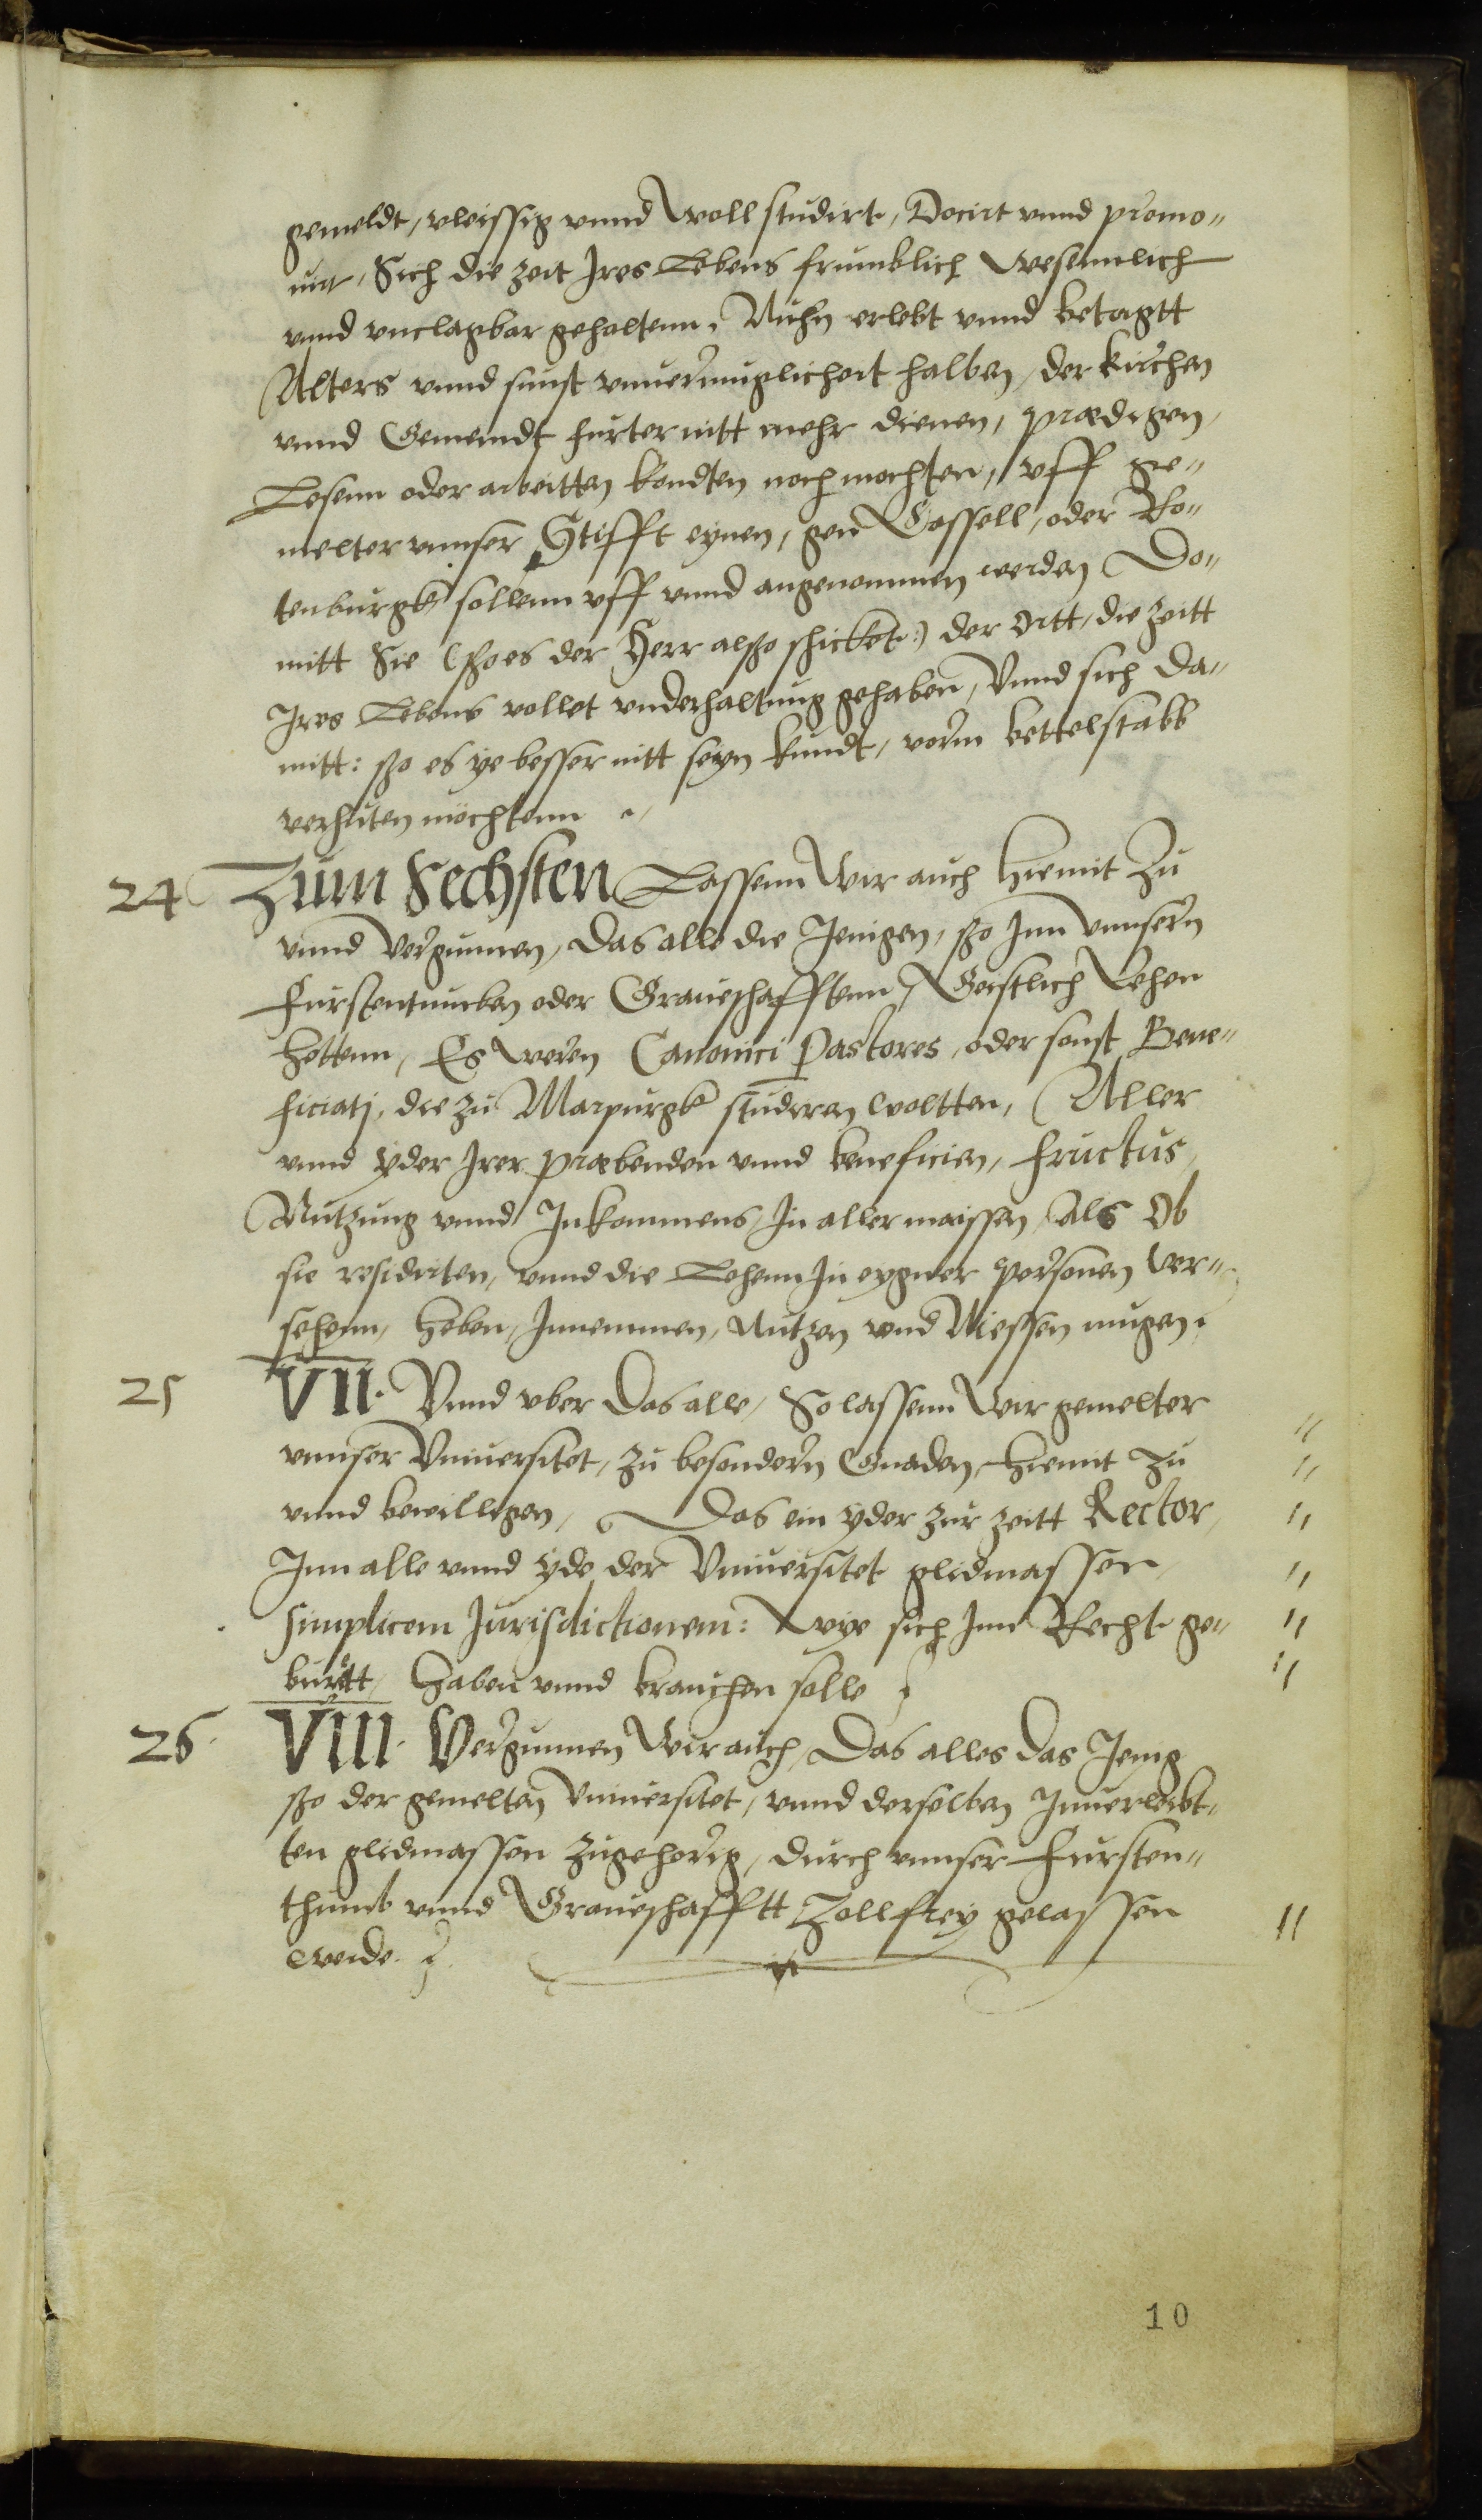 gemeldt, vleissig vnnd woll studirt, Docirt vnnd promo„
uirt, Sich die zeit Ires Lebens frumblich wesennlich
vnnd vnclagbar gehaltenn, Nuhn erlebt vnnd betagtt
Alters vnnd sunst vnuermuglicheit halben, der kirchen
vnnd Gemeindt furter nitt mehr dienen, prædigen,
Lesenn oder arbeitten kondten noch mochten, vff ge„
melter vnnser Stifft eynen, gen Cassell, oder Ro„
tenburgk sollenn vff vnnd angenommen werden Do„
mitt Sie (ßo es der Herr alßo schicket:) der ortt, die zeitt
Ires Lebens vollet vnderhaltung gehaben, Vnnd sich da„
mitt: ßo es ye besser nitt seyn kundt, vorm bettelstabb
verhuten möchtenn
24 Zum Sechsten Lassenn Wir auch hiemit zu
vnnd vergunnen, das alle die Jenigen, ßo Inn vnnsern
Furstentumben oder Graueschafftenn, Geistlich Lehen
hettenn, Es weren Canonici Pastores, oder sonst Bene„
ficiatj, die zu Marpurgk studiren woltten, Aller
vnnd yder Irer præbenden vnnd beneficien, fructus,
Nutzung vnnd Inkommens, In aller maissen, als ob
sie residirten, vnnd die Lehenn In eygner personen ver„
sehenn, heben, Innemmen, Nutzen vnd Niessen mugen.
25 VII. Vnnd vber das alle, So lassenn Wir gemelter
vnnser Vniuersitet, zu besondern Gnaden, hiemit zu
vnnd bewilligen, Das ein yder zur zeitt Rector,
Inn alle vnnd yde der Vniuersitet glidmassen
simplicem Jurisdictionem: Wye sich Inn Recht ge„
burtt, haben vnnd brauchen solle
26. VIII. Vergunnen Wir auch, Das alles das Jenig
ßo der gemelten Vniuersitet, vnnd derselben Innerleibt„
ten glidmassen zugehorig, durch vnnser Fursten„
thumb vnnd Graueschafftt Zollfrey gelassen
werde.
10